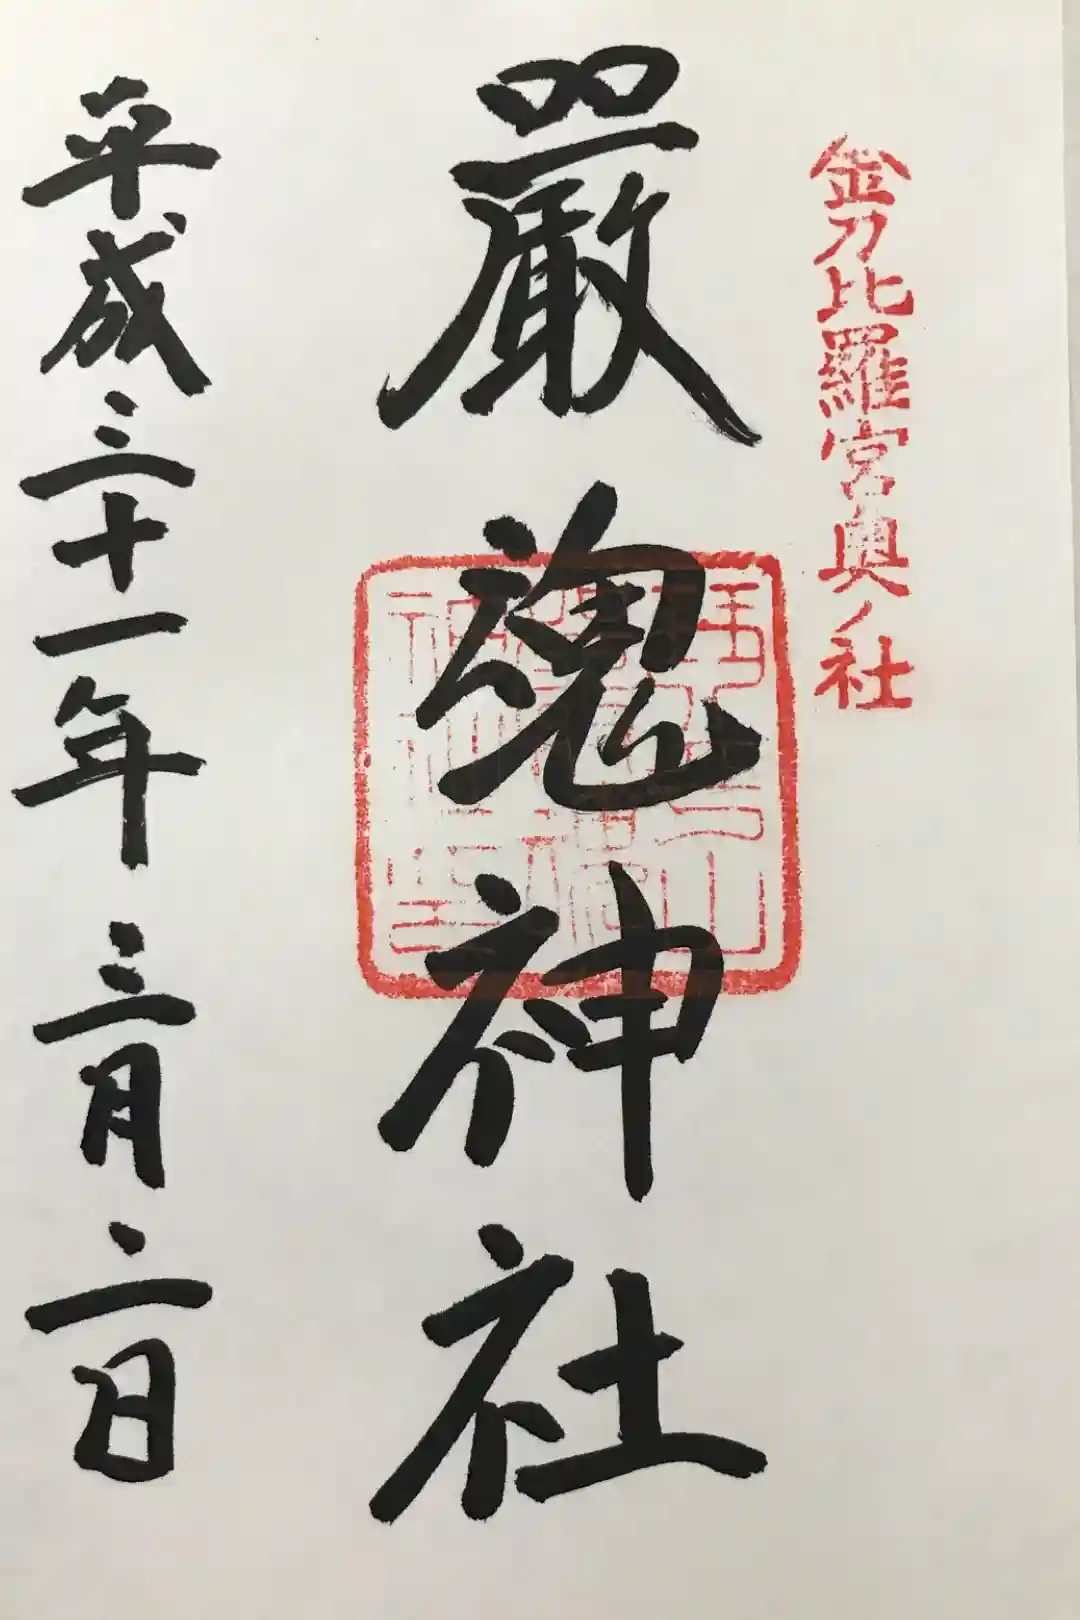 金刀比羅宮奥ノ社
嚴魂神社
平成三十一年三月二日